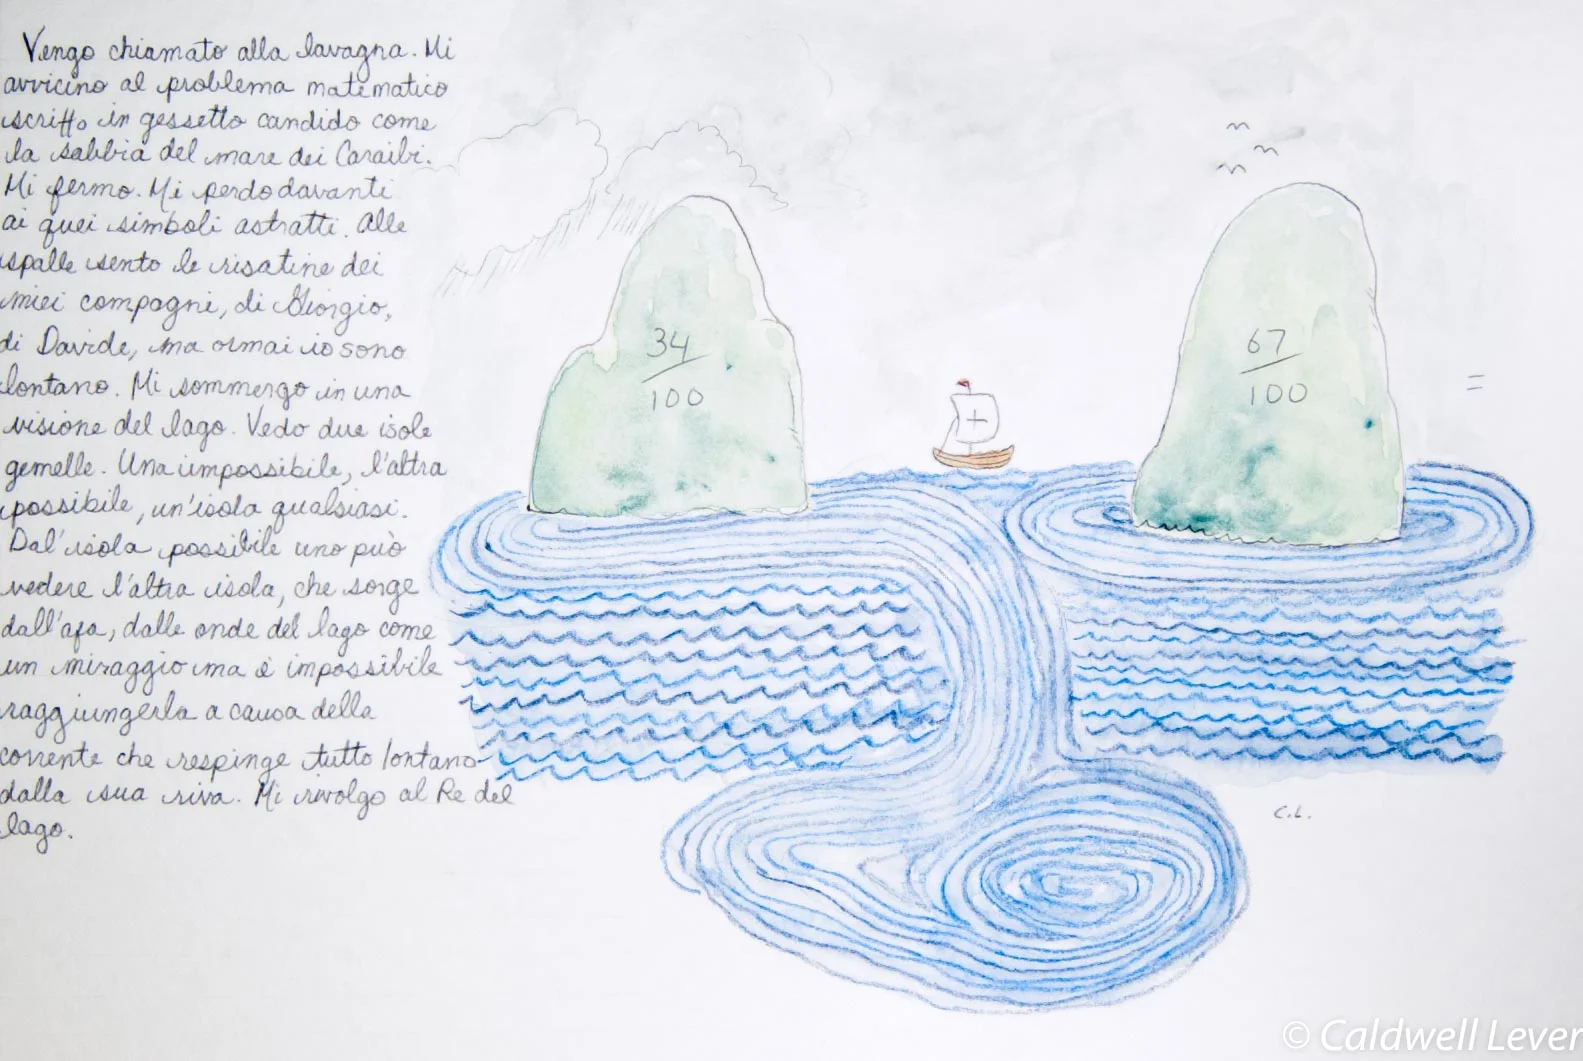 Vengo chiamato alla lavagna. Mi
avvicino al problema matematico
scritto in gessetto candido come
la sabbia del mare dei Caraibi.
Mi fermo. Mi perdo davanti
ai quei simboli astratti. Alle
spalle sento le risatine dei
miei compagni, di Giorgio,
di Davide, ma ormai io sono
lontano. Mi sommergo in una
visione del lago. Vedo due isole
gemelle. Una impossibile, l'altra
possibile, un'isola qualsiasi.
Dal'isola possibile uno può
vedere l'altra isola, che sorge
dall'afa, dalle onde del lago come
un miraggio ma è impossibile
raggiungerla a causa della
corrente che respinge tutto lontano
dalla sua riva. Mi rivolgo al Re del
lago.
34
100
+
67
100
=
C.L.
© Caldwell Lever